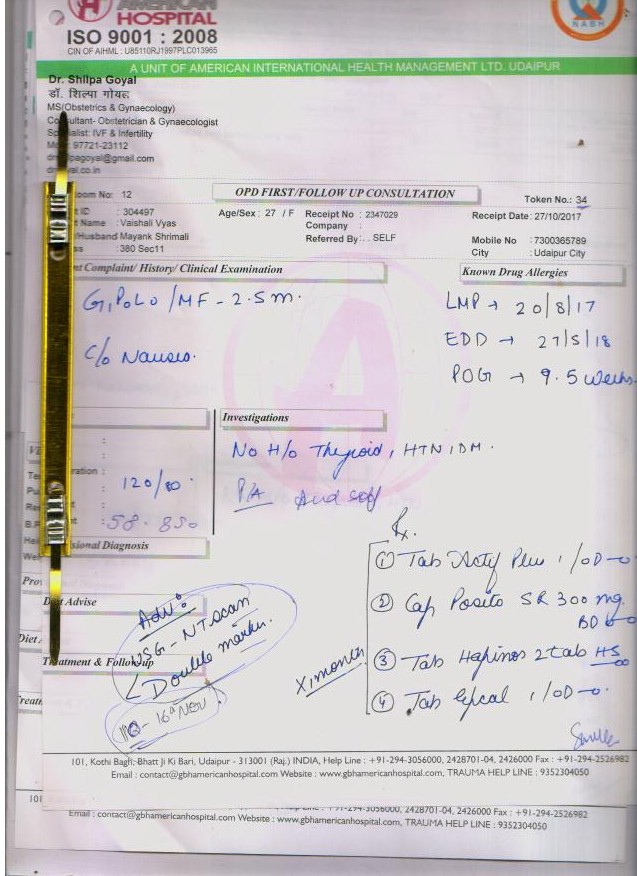 AMERICAN
HOSPITAL
ISO 9001 : 2008
CIN OF AIHML : U85110RJ1997PLC013965
NABH
A UNIT OF AMERICAN INTERNATIONAL HEALTH MANAGEMENT LTD. UDAIPUR
Dr. Shilpa Goyal
डॉ. शिल्पा गोयल
MS(Obstetrics & Gynaecology)
Consultant- Obstetrician & Gynaecologist
Specialist: IVF & Infertility
97721-23112
pagoyal@gmail.com
oom No: 12
OPD FIRST/FOLLOW UP CONSULTATION
Token No.: 34
ID : 304497
Age/Sex : 27 / F
Receipt No : 2347029
Receipt Date : 27/10/2017
Name : Vaishali Vyas
Company :
Husband Mayank Shrimali
Referred By: . . SELF
Mobile No : 7300365789
ss : 380 Sec11
City : Udaipur City
nt Complaint/ History/ Clinical Examination
Known Drug Allergies
G1P0L0 /MF - 2.5 m.
LMP → 20/8/17
C/o Nausea.
EDD → 27/5/18
POG → 9.5 weeks
Investigations
No H/o Thyroid, HTN, DM.
ration :
120/80
P/A soft
58.850
sional Diagnosis
Rx.
① Tab Plus 1/OD
Advise
Adv:
② Cap SR 300 mg.
BD
USG - NT scan
Double marker.
Diet
Treatment & Followup
X 1 month
③ Tab 2 tab HS
④ Tab 1/OD
16th Nov
101, Kothi Bagh, Bhatt Ji Ki Bari, Udaipur - 313001 (Raj.) INDIA, Help Line : +91-294-3056000, 2428701-04, 2426000 Fax : +91-294-2526982
Email : contact@gbhamericanhospital.com Website : www.gbhamericanhospital.com, TRAUMA HELP LINE : 9352304050
101
3056000, 2428701-04, 2426000 Fax : +91-294-2526982
Email : contact@gbhamericanhospital.com Website : www.gbhamericanhospital.com, TRAUMA HELP LINE : 9352304050